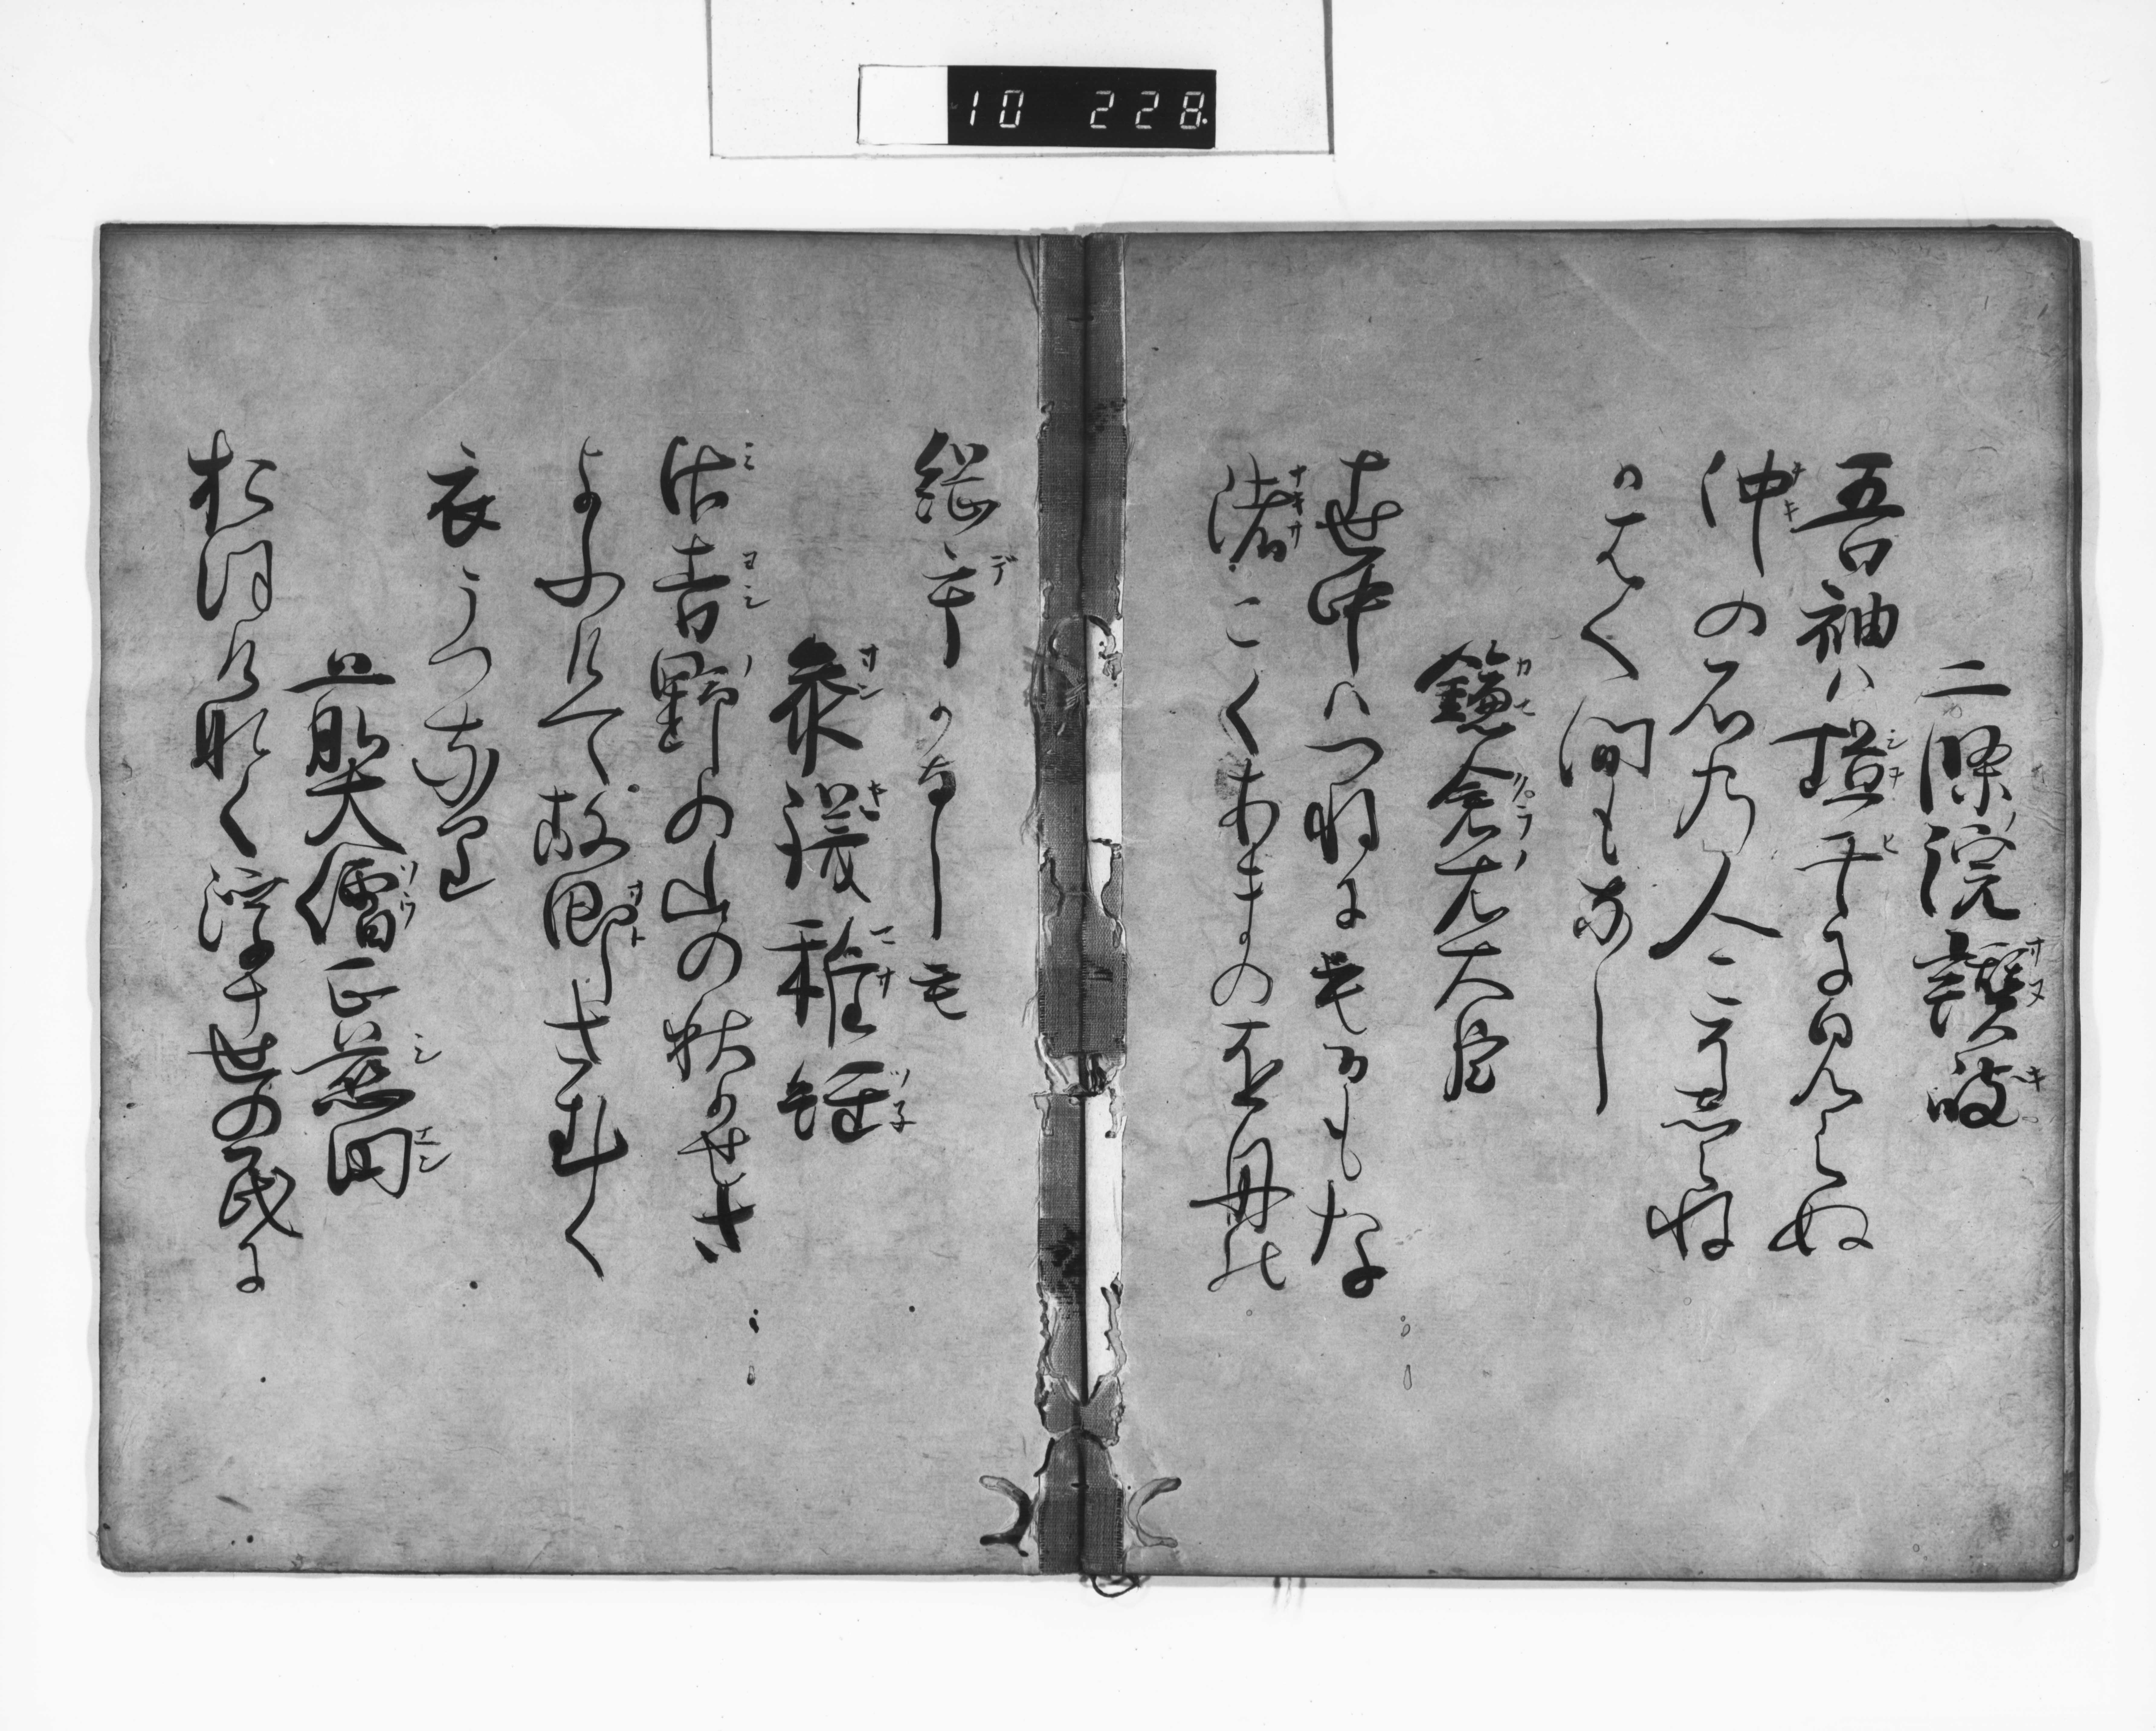 10 228
二條院讃岐
吾袖ハ塩干に見えぬ
沖の石乃人こそしらね
かはく間もなし
鎌倉右大臣
世中ハつねにもかもな
渚こくあまの小舟の
綱手かなしも
参議雅経
御吉野の山の秋かせさ
よふけて故郷さむく
衣うつなり
前大僧正慈円
おほけなく浮世の民に